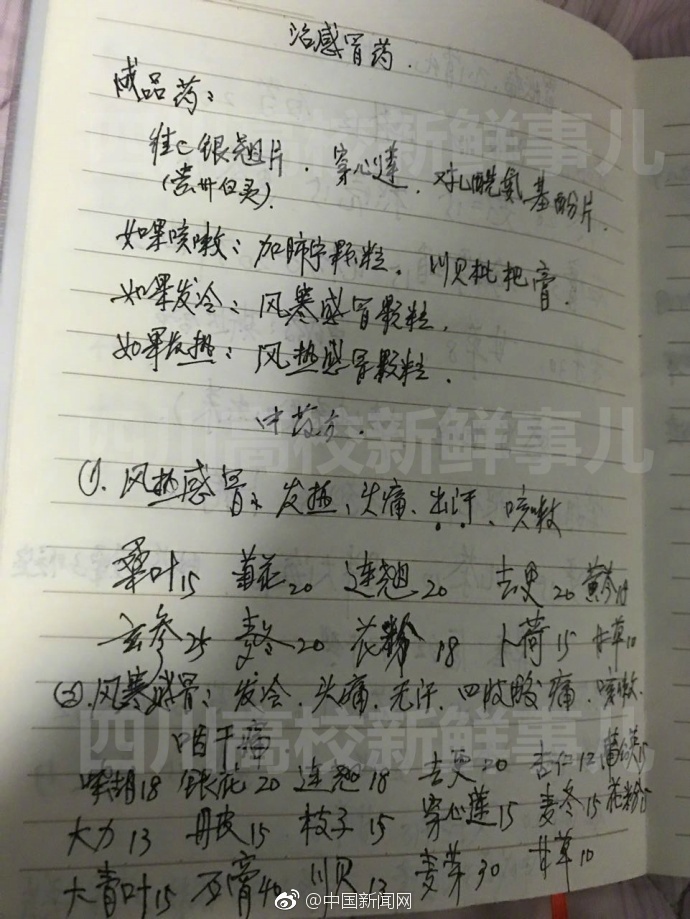 治感冒药.
成品药:
维C银翘片. 穿心莲. 对乙酰氨基酚片.
如果咳嗽: 加肺宁颗粒. 川贝枇杷膏.
如果发冷: 风寒感冒颗粒.
如果发热: 风热感冒颗粒.
中药方.
(1). 风热感冒: 发热、头痛、出汗、咳嗽
桑叶15 菊花20 连翘20 去更20 黄芩
玄参25 麦冬20 花粉18 卜荷15 甘草10
(2). 风寒感冒: 发冷、头痛、无汗、四肢酸痛、咳嗽.
咽干痛
柴胡18 银花20 连翘18 去更20 杏仁12
大力13 丹皮15 枝子15 穿心莲15 麦冬15 花粉15
大青叶15 石膏40 川贝12 麦芽30 甘草10
四川高校新鲜事儿
四川高校新鲜事儿
四川高校新鲜事儿
@中国新闻网